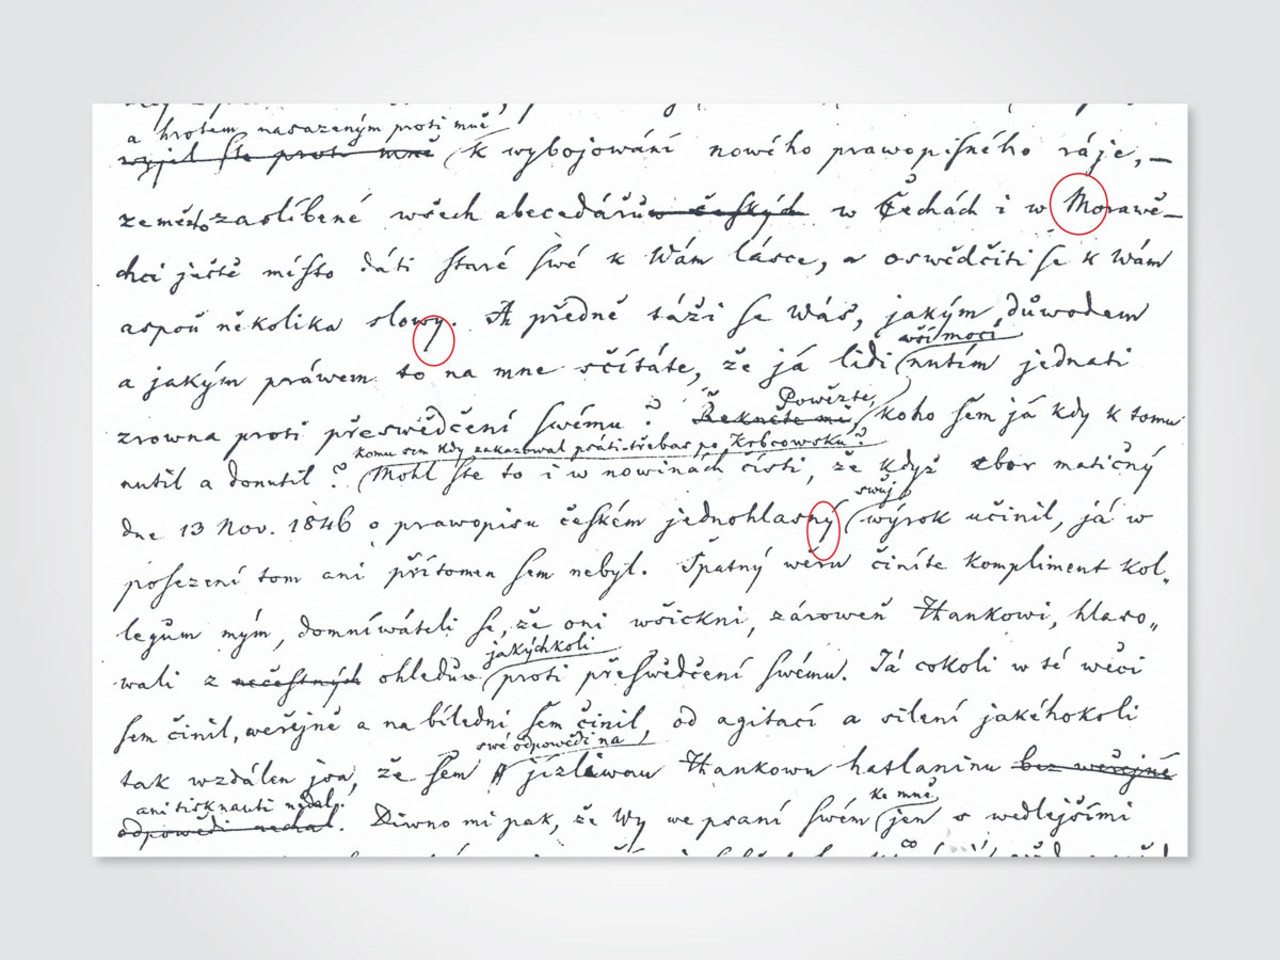 a hrotem nasazeným proti mně
wyjel ste proti mně k wybojowání nowého prawopisného ráje, —
země zaslíbené wšech abecedářůw českých w Čechách i w Morawě —
chci ještě místo dáti staré swé k Wám lásce, a oswědčiti se k Wám
aspoň několika slowy. A předně táži se Wás, jakým důwodem
wší mocí
a jakým práwem to na mne sčítáte, že já lidi nutím jednati
Powězte,
zrowna proti přeswědčení swému? Řekněte mi, koho sem já kdy k tomu
komu sem kdy zakazowal psáti třebas po Krbcowsku?
nutil a donutil? Mohl ste to i w nowinách čísti, že když sbor matičný
swůj
dne 13 Nov. 1846 o prawopisu českém jednohlasný wýrok učinil, já w
posezení tom ani přítomen sem nebyl. Špatný wěru činíte kompliment kol„
legům mým, domníwáteli se, že oni wšickni, zároweň Hankowi, hlaso„
jakýchkoli
wali z nečestných ohledůw proti přeswědčení swému. Já cokoli w té wěci
sem činil, weřejně a na bíledni sem činil, od agitací a silení jakéhokoli
swé odpowědi na
tak wzdálen jsa, že sem jízliwau Hankowu hatlaninu bez weřejné
ani tisknauti nedal.
odpowědi nechal. Diwno mi pak, že Wy we psaní swém jen s wedlejšími
ke mně